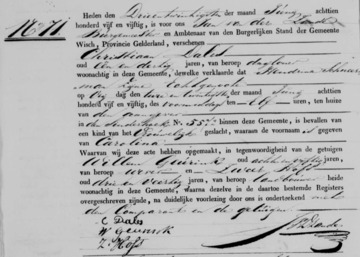 No 71
Heden den Drie en twintigsten der maand Juny achttien
honderd vijf en vijftig, is voor ons
Burgemeester en Ambtenaar van den Burgerlijken Stand der Gemeente
Wisch, Provincie Gelderland, verscheen
Christiaan Dales
oud een en dertig jaren, van beroep daglooner
woonachtig in deze Gemeente, dewelke verklaarde dat Hendrina
zijne echtgenoote
op den twee en twintigsten der maand Juny achttien
honderd vijf en vijftig, des voormiddags ten elf uren, ten huize
van den aangever
No 55 binnen deze Gemeente, is bevallen van
een kind van het Vrouwelijk geslacht, waaraan de voornaam is gegeven
van Carolina
Waarvan wij deze acte hebben opgemaakt, in tegenwoordigheid van de getuigen
Willem Geurink oud acht en vijftig jaren,
van beroep wever en Zweer Hofs
oud drie en veertig jaren, van beroep landbouwer beide
woonachtig in deze Gemeente, waarna dezelve in de daartoe bestemde Registers
overgeschreven zijnde, na duidelijke voorlezing door ons is onderteekend met
den Comparant en de getuigen
C Dales
W Geurink
Z Hofs